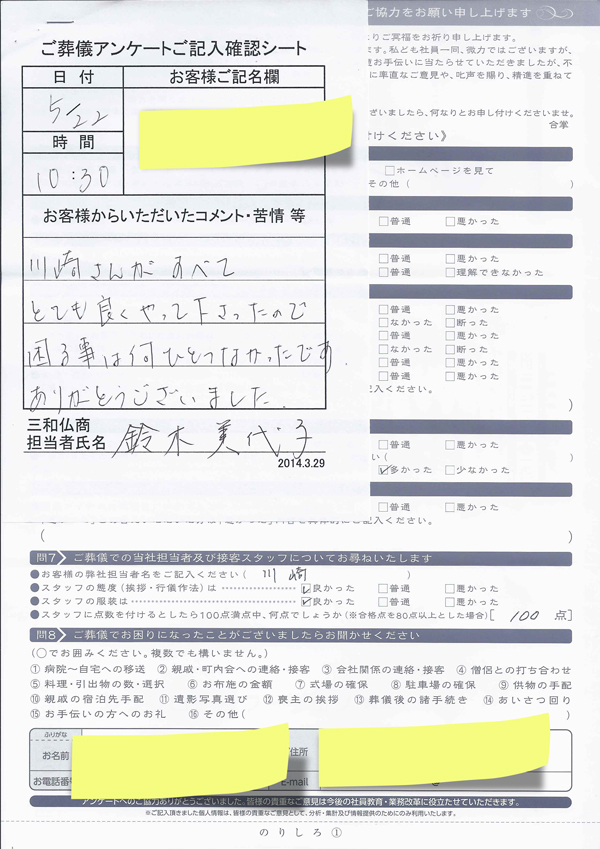 ご葬儀アンケートご記入確認シート
日付
お客様ご記名欄
5/22
時間
10:30
お客様からいただいたコメント・苦情 等
川崎さんがすべて
とても良くやって下さったので
困る事は何ひとつなかったです
ありがとうございました.
三和仏商
担当者氏名 鈴木美代子
2014.3.29
ご協力をお願い申し上げます
りご冥福をお祈り申し上げます。
ます。私ども社員一同、微力ではございますが、
お手伝いに当たらせていただきましたが、不
に率直なご意見や、叱声を賜り、精進を重ねて
ざいましたら、何なりとお申し付けくださいませ。
合掌
付けください》
□ホームページを見て
その他( )
□普通 □悪かった
□普通 □悪かった
□普通 □理解できなかった
□普通 □悪かった
□なかった □断った
□普通 □悪かった
□なかった □断った
□普通 □悪かった
□普通 □悪かった
記入ください。
)
□普通 □悪かった
い(
☑多かった □少なかった
□普通 □悪かった
記入ください。
( )
問7 ご葬儀での当社担当者及び接客スタッフについてお尋ねいたします
●お客様の弊社担当者名をご記入ください( 川崎 )
●スタッフの態度(挨拶・行儀作法)は ☑良かった □普通 □悪かった
●スタッフの服装は ☑良かった □普通 □悪かった
●スタッフに点数を付けるとしたら100点満点中、何点でしょうか(※合格点を80点以上とした場合)[ 100 点]
問8 ご葬儀でお困りになったことがございましたらお聞かせください
(○でお囲みください。複数でも構いません。)
①病院〜自宅への移送 ②親戚・町内会への連絡・接客 ③会社関係の連絡・接客 ④僧侶との打ち合わせ
⑤料理・引出物の数・選択 ⑥お布施の金額 ⑦式場の確保 ⑧駐車場の確保 ⑨供物の手配
⑩親戚の宿泊先手配 ⑪遺影写真選び ⑫喪主の挨拶 ⑬葬儀後の諸手続き ⑭あいさつ回り
⑮お手伝いの方へのお礼 ⑯その他( )
ふりがな
お名前
住所
お電話番号
E-mail
アンケートへのご協力ありがとうございました。皆様の貴重なご意見は今後の社員教育・業務改革に役立たせていただきます。
※ご記入頂きました個人情報は、皆様の貴重なご意見として、分析・集計及び情報提供のためにのみ利用いたします。
のりしろ①